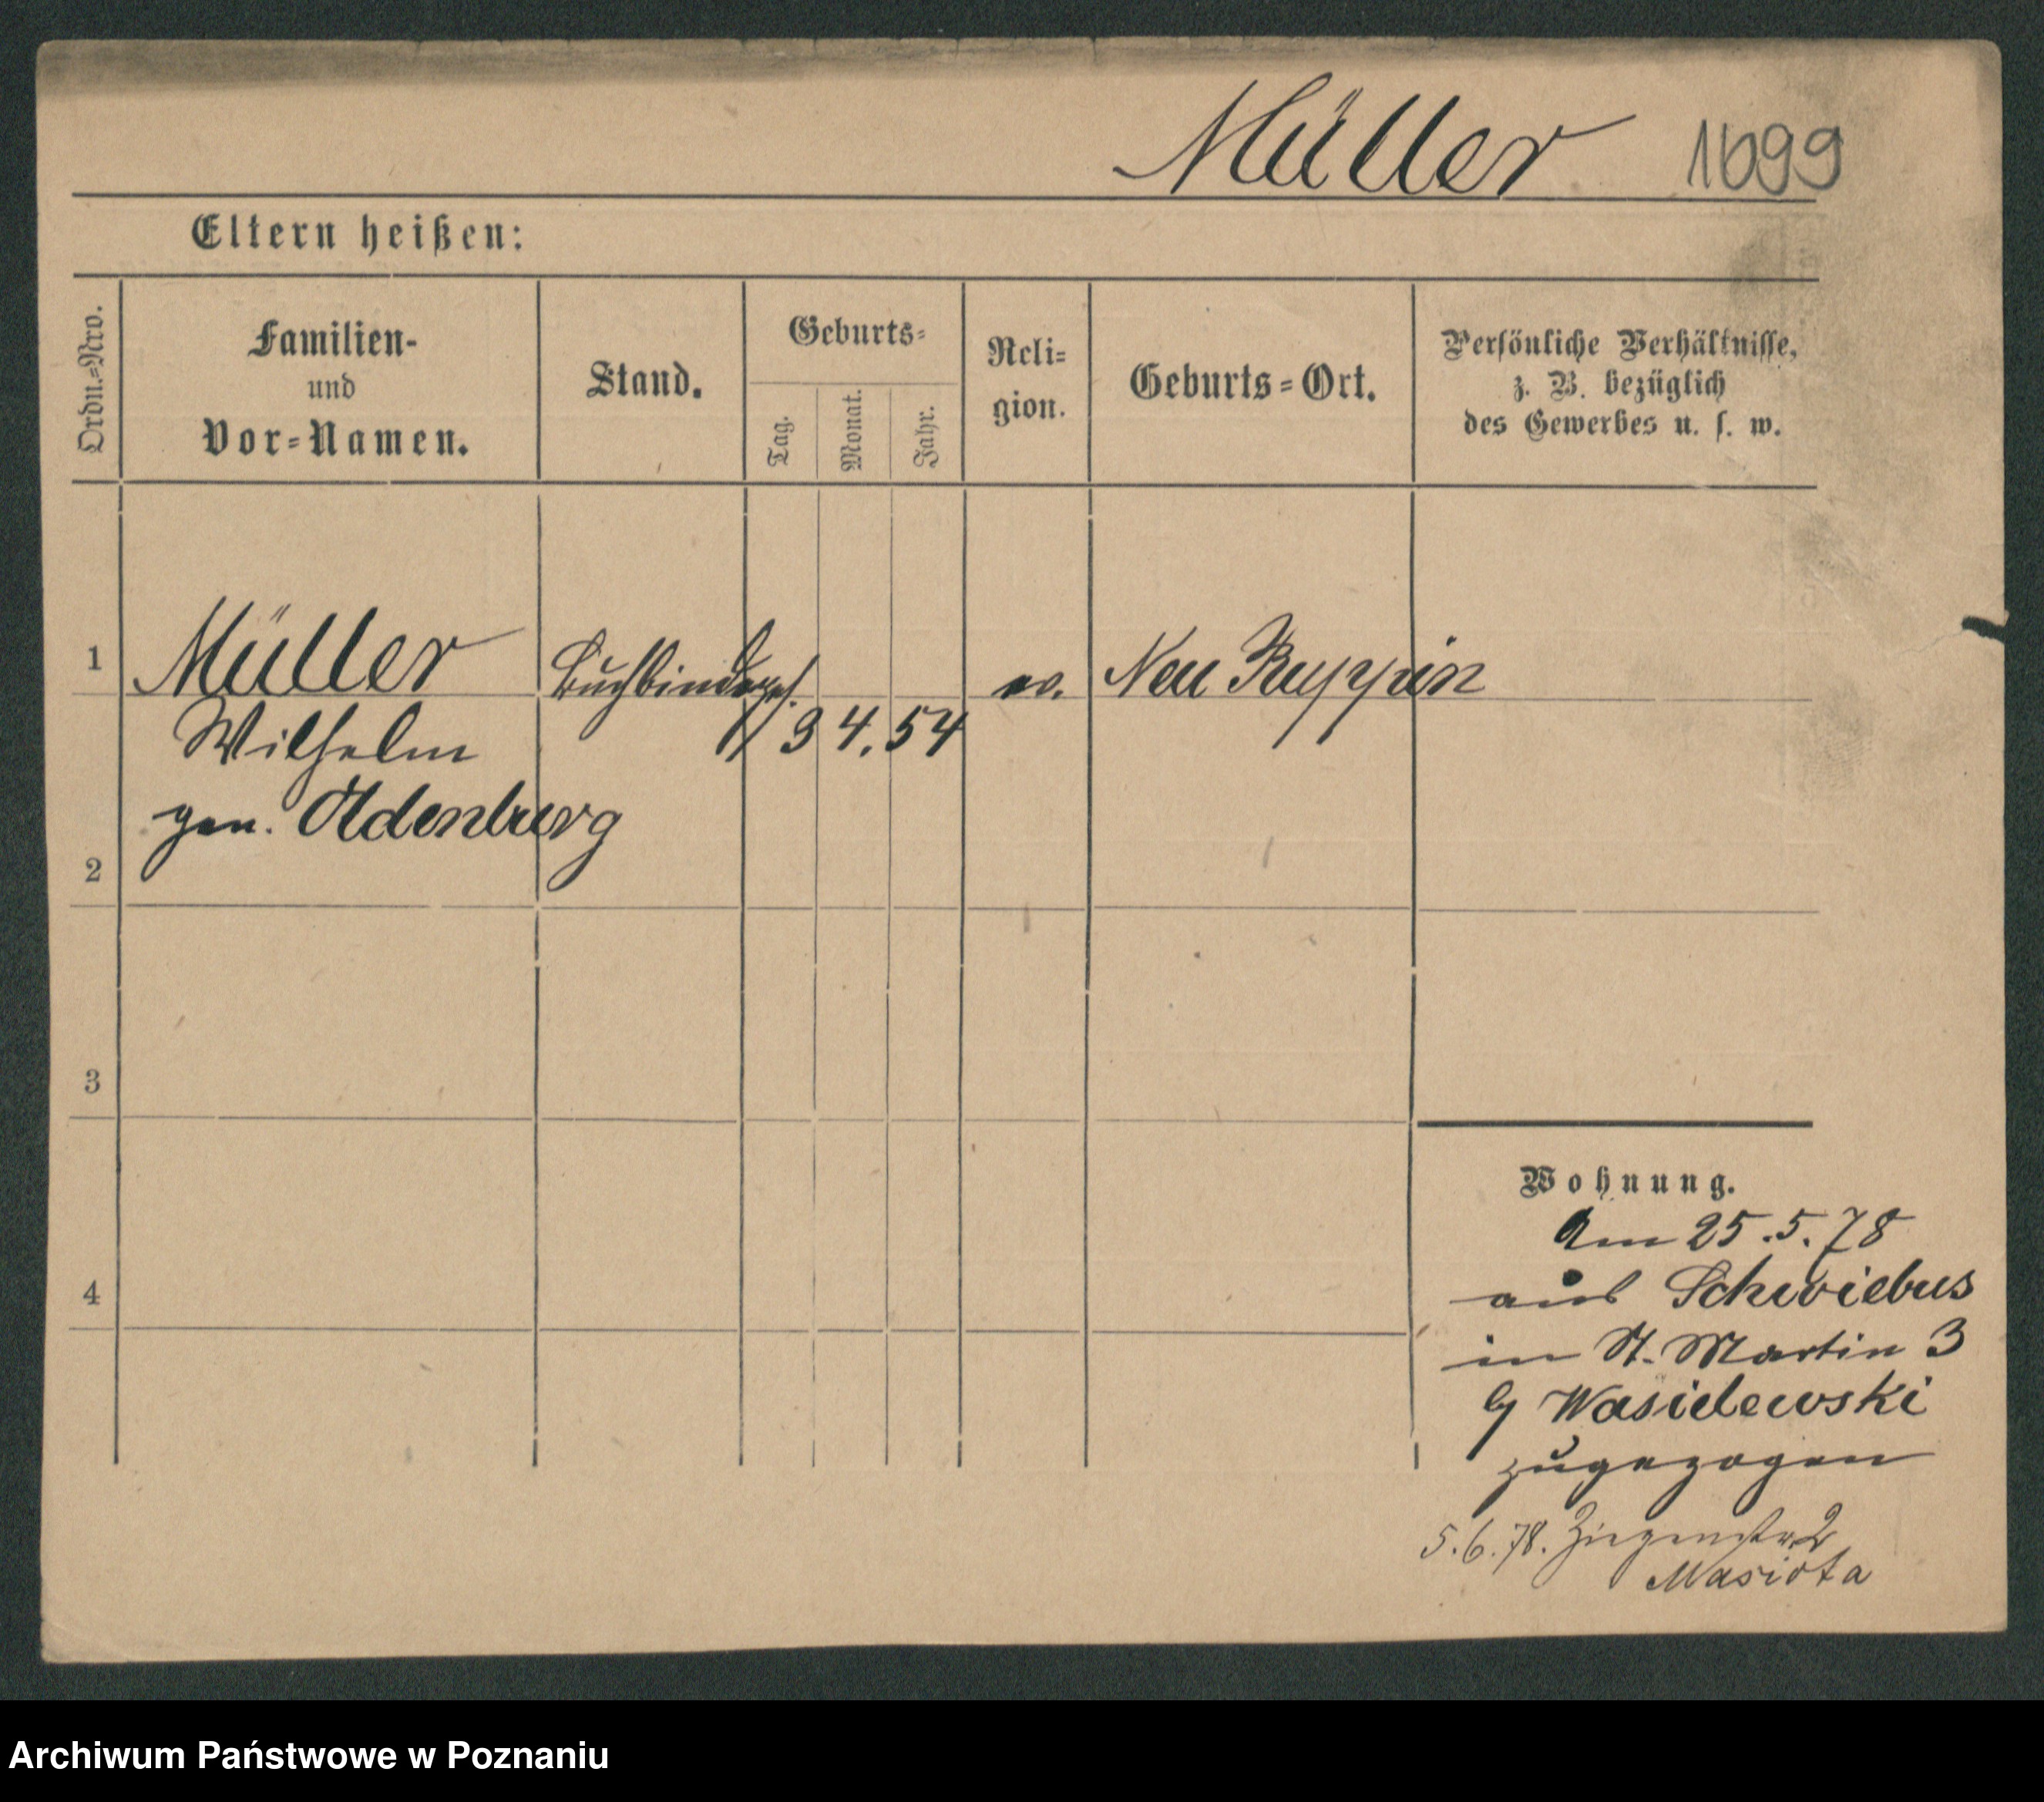 Müller 1699
Eltern heißen:
Ordn.=Nro.
Familien-
und
Vor=Namen.
Stand.
Geburts=
Tag.
Monat.
Jahr.
Reli=
gion.
Geburts=Ort.
Persönliche Verhältnisse,
z. B. bezüglich
des Gewerbes u. s. w.
1 Müller Buchbinderges. ev. Neu Ruppin
Wilhelm 3 4. 54
gen. Oldenburg
2
3
4
Wohnung.
Am 25.5.78
aus Schwiebus
in St. Martin 3
Wasielewski
zugezogen
5.6.78. Ziegenstr. 2
Masiota
Archiwum Państwowe w Poznaniu